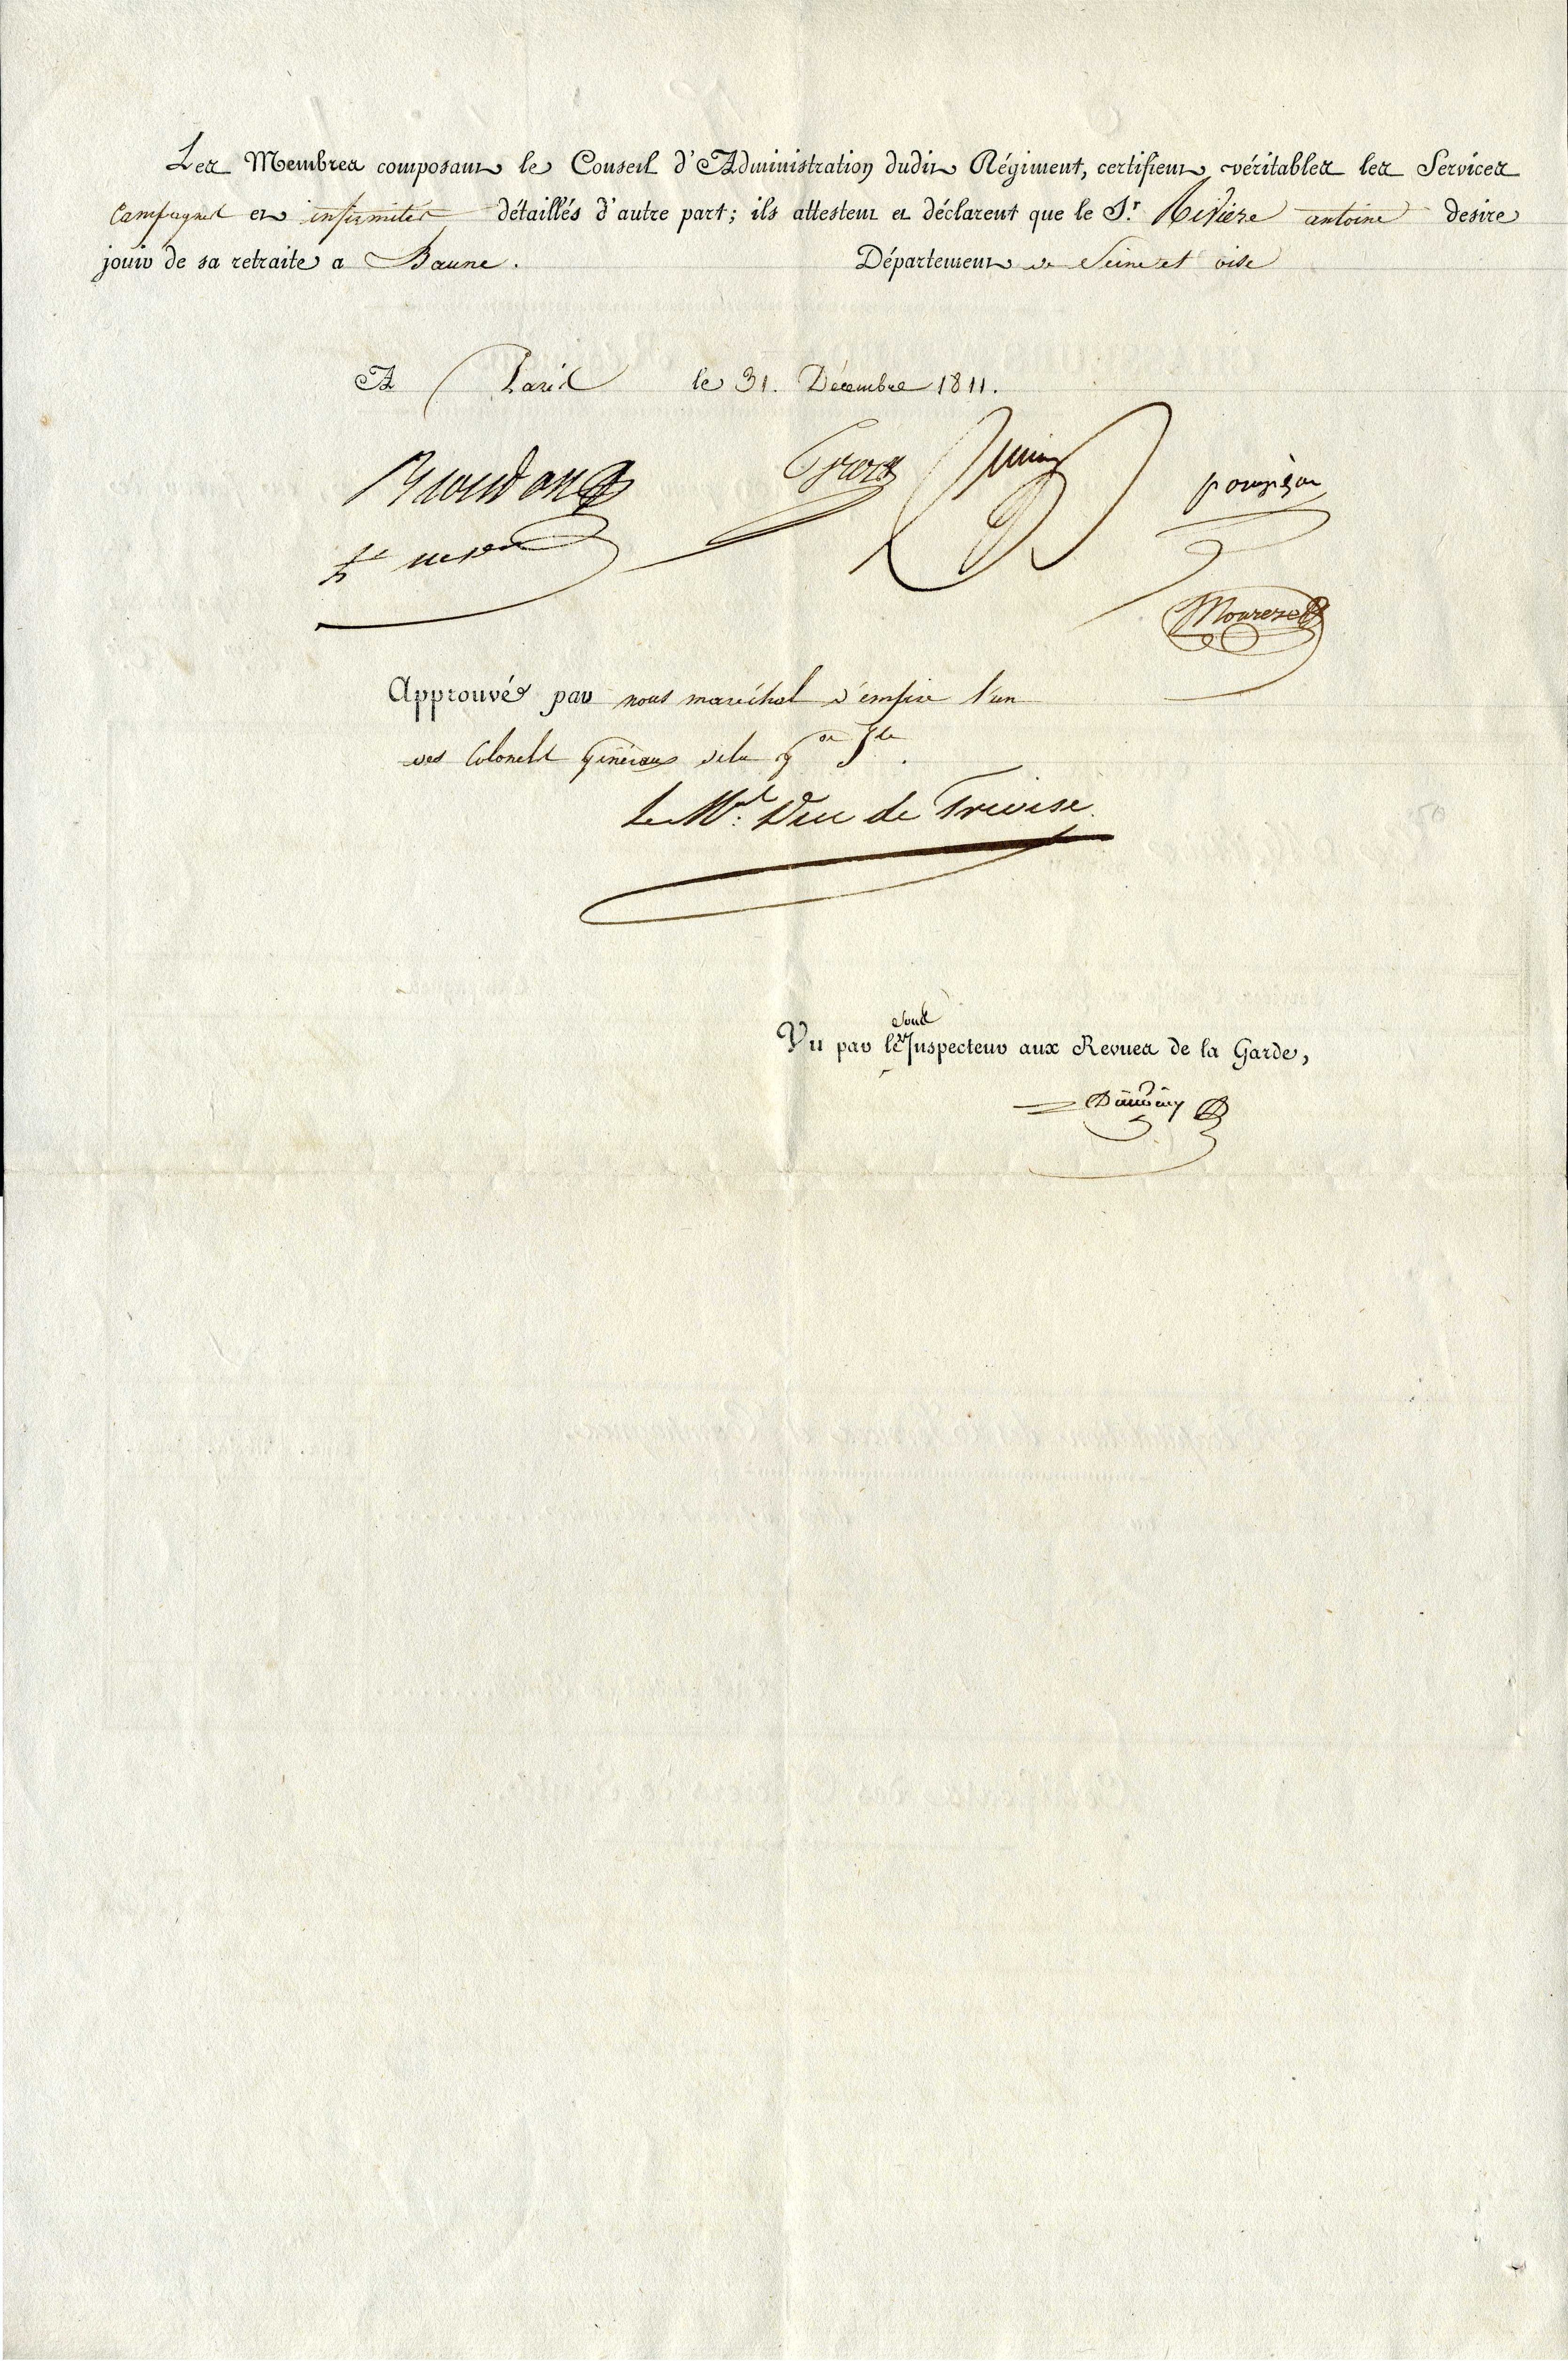 Les Membres composant le Conseil d'Administration dudit Régiment, certifient véritables les Services
Campagnes et infirmités détaillés d'autre part; ils attestent et déclarent que le S.r Rivière antoine desire
jouir de sa retraite a Baune. Département de Seine et oise
A Paris le 31. Décembre 1811.
Approuvé par nous maréchal d'empire l'un
des Colonels Généraux de la g.de J.le.
Le M.al Duc de Trevise.
sous
Vu par le Inspecteur aux Revues de la Garde,